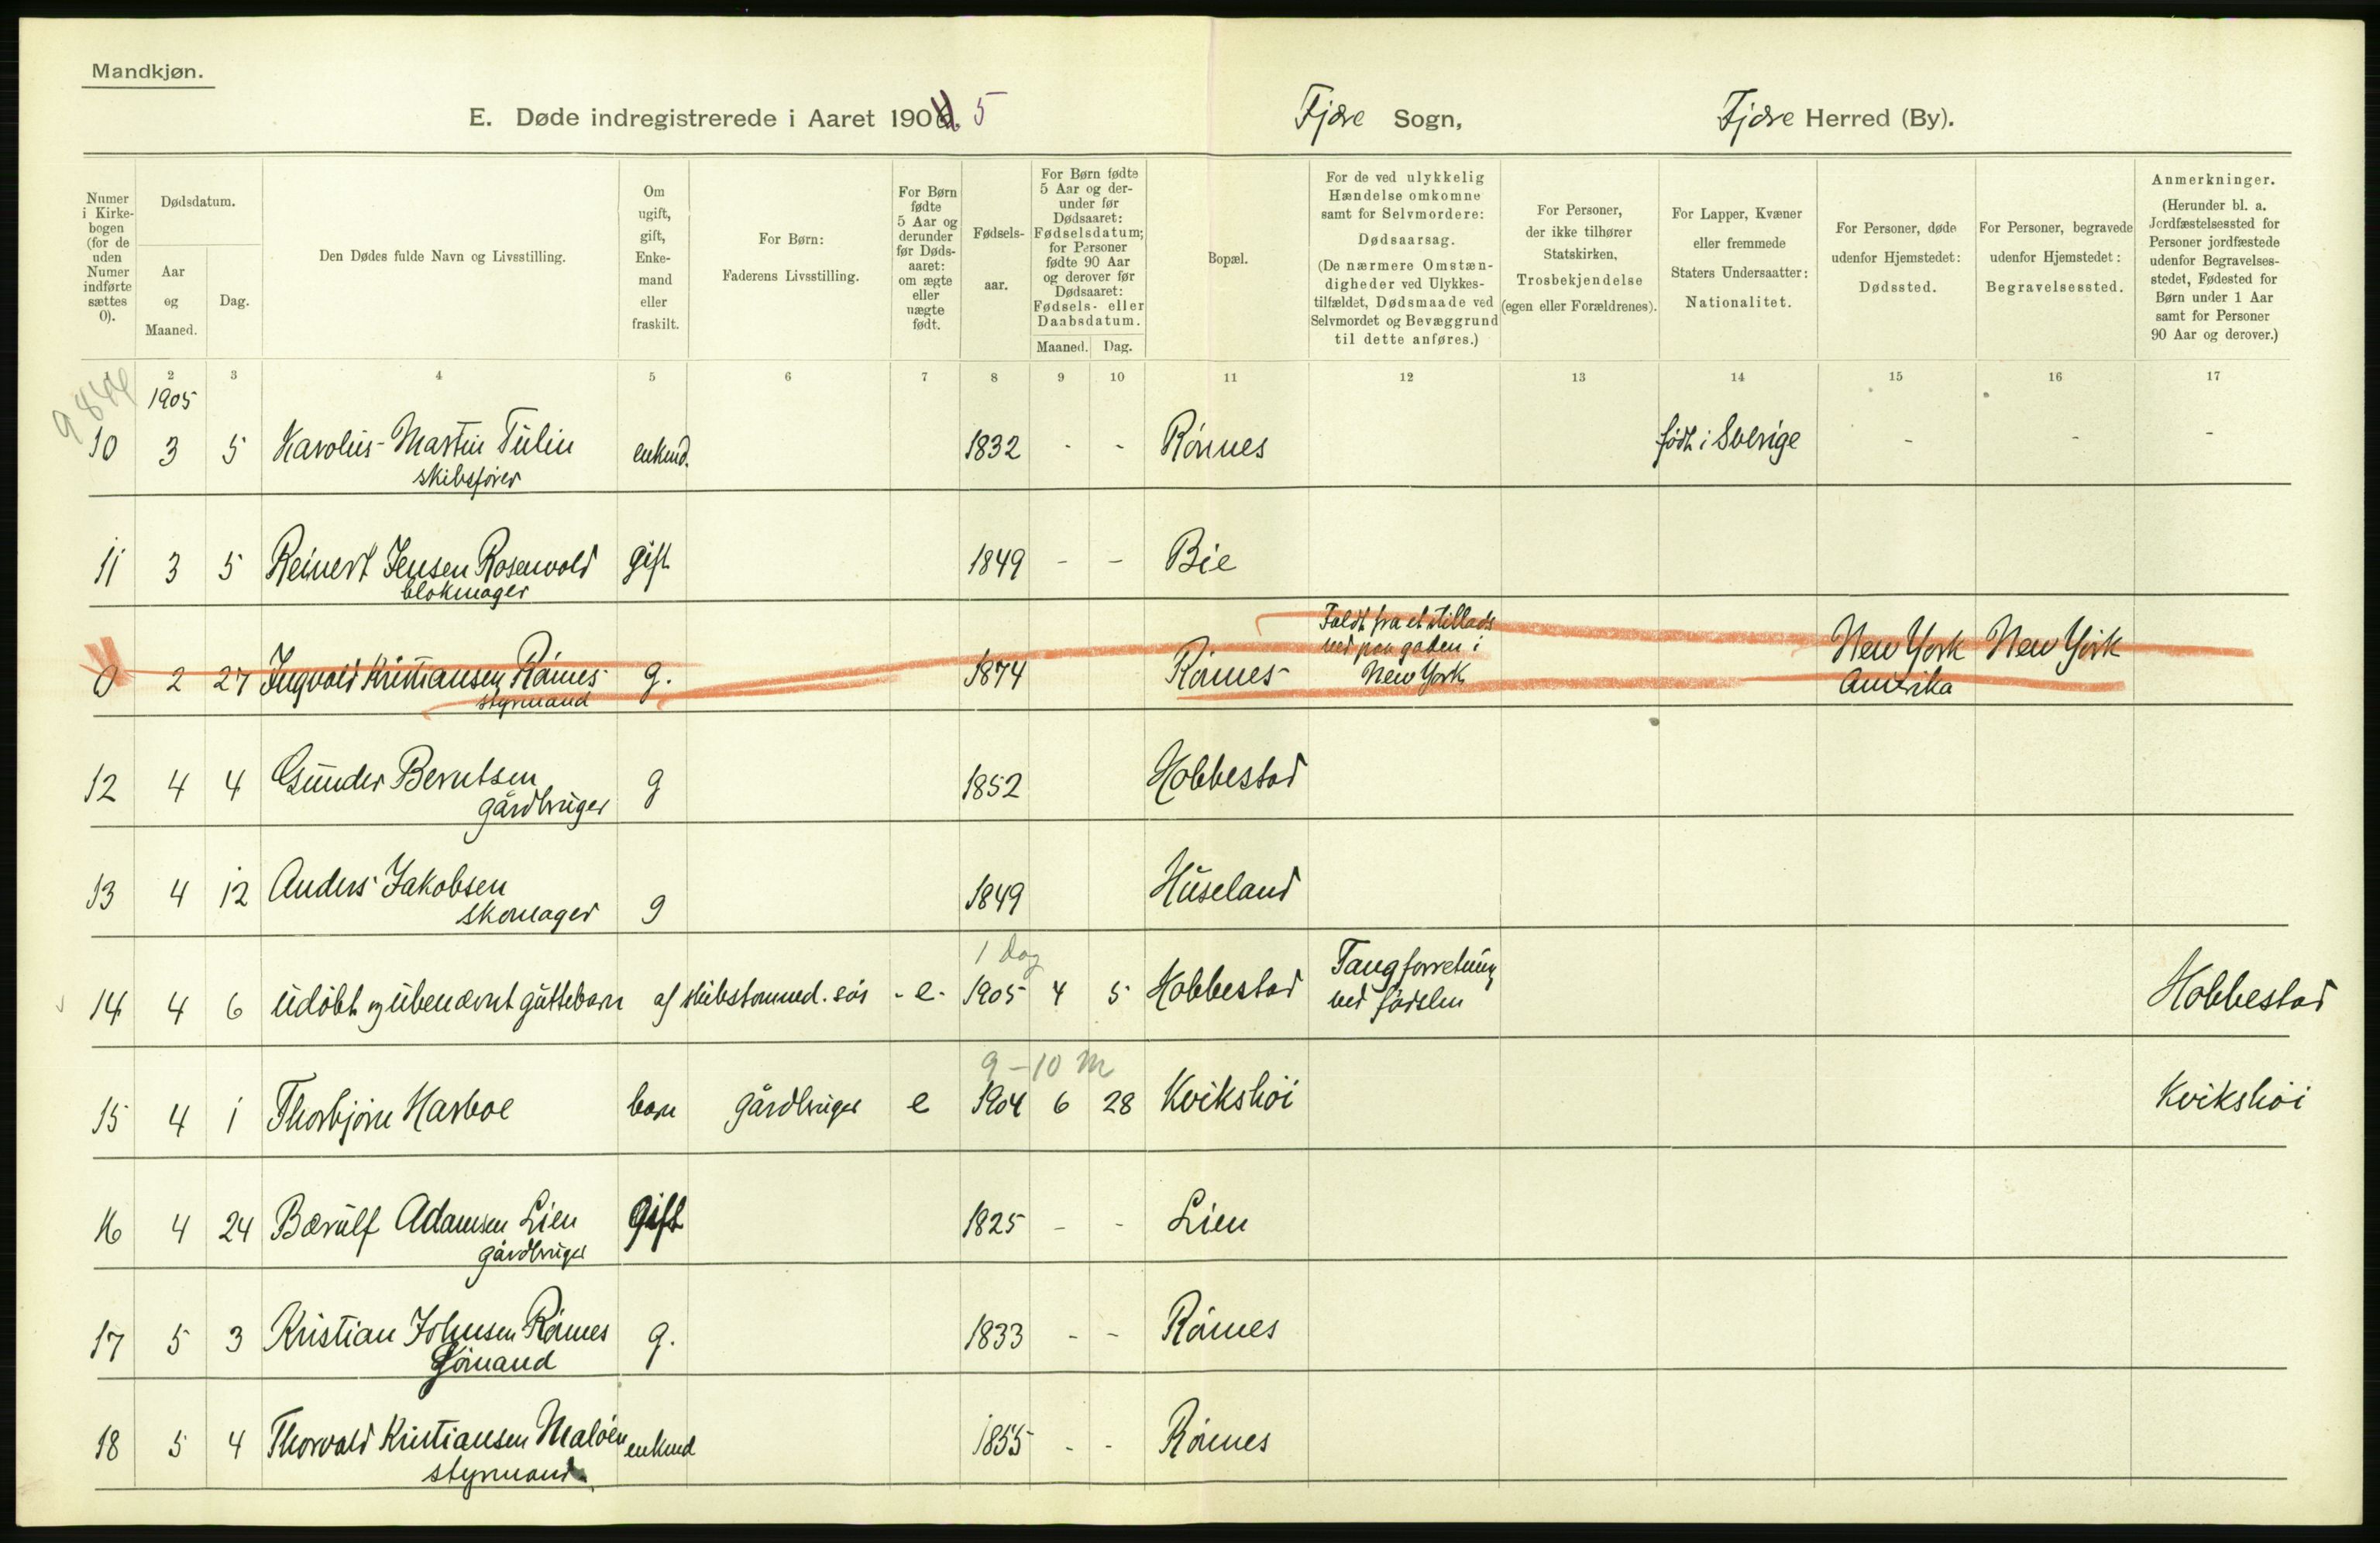 Mandkjøn.
E. Døde indregistrerede i Aaret 190 5 Fjære Sogn, Fjære Herred (By).
Numer i Kirkebogen (for de uden Numer indførte sættes 0).
Dødsdatum.
Aar og Maaned.
Dag.
Den Dødes fulde Navn og Livsstilling.
Om ugift, gift, Enkemand eller fraskilt.
For Børn: Faderens Livsstilling.
For Børn fødte 5 Aar og derunder før Dødsaaret: om ægte eller uægte født.
Fødselsaar.
For Børn fødte 5 Aar og derunder før Dødsaaret: Fødselsdatum; for Personer fødte 90 Aar og derover før Dødsaaret: Fødsels- eller Daabsdatum.
Maaned. Dag.
Bopæl.
For de ved ulykkelig Hændelse omkomne samt for Selvmordere: Dødsaarsag. (De nærmere Omstændigheder ved Ulykkestilfældet, Dødsmaade ved Selvmordet og Bevæggrund til dette anføres.)
For Personer, der ikke tilhører Statskirken, Trosbekjendelse (egen eller Forældrenes).
For Lapper, Kvæner eller fremmede Staters Undersaatter: Nationalitet.
For Personer, døde udenfor Hjemstedet: Dødssted.
For Personer, begravede udenfor Hjemstedet: Begravelsessted.
Anmerkninger. (Herunder bl. a. Jordfæstelsessted for Personer jordfæstede udenfor Begravelsesstedet, Fødested for Børn under 1 Aar samt for Personer 90 Aar og derover.)
2 3 4 5 6 7 8 9 10 11 12 13 14 15 16 17
1905
10 3 5 Karolius Martin Tulin enkmd. 1832 - - Rönnes født i Sverige - - -
skibsfører
11 3 5 Reinert Jensen Rosenvold gift 1849 - - Bie
blokmager
0 2 27 Ingvald Kristiansen Rönnes g. 1874 Rönnes Faldt fra et stillads ned paa gaden i New York New York Amerika New York
styrmand
12 4 4 Gunder Berntsen g 1852 Hobbestad
gårdbruger
13 4 12 Anders Jakobsen g 1849 Huseland
skomager
1 dag
14 4 6 udöbt og ubenævnt guttebarn af skibstømmed. søs - e - 1905 4 5 Hobbestad Tangforretning ved fødslen Hobbestad
9-10 m
15 4 1 Thorbjörn Harboe barn gårdbruger e 1904 6 28 Kvikshöi Kvikshöi
16 4 24 Bærulf Adamsen Lien gift 1825 - - Lien
gårdbruger
17 5 3 Kristian Johnsen Rönnes g. 1833 - - Rönnes
Sömand
18 5 4 Thorvald Kristiansen Maløen enkmd 1855 - - Rönnes
styrmand